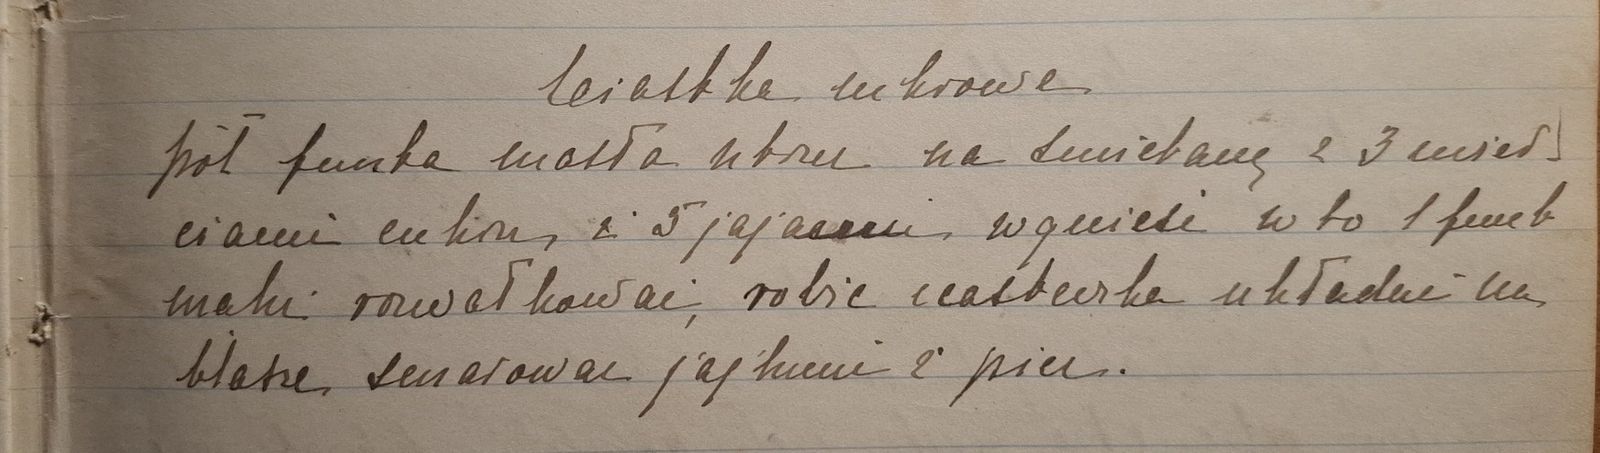 Ciastka cukrowe
pół funta masła utrzeć na śmietanę z 3 
ciami cukru, i 5 jajami, wgnieść w to 1 funt
mąki rozwałkować, robić ciasteczka układać na
blasze, smarować jajkami i piec.